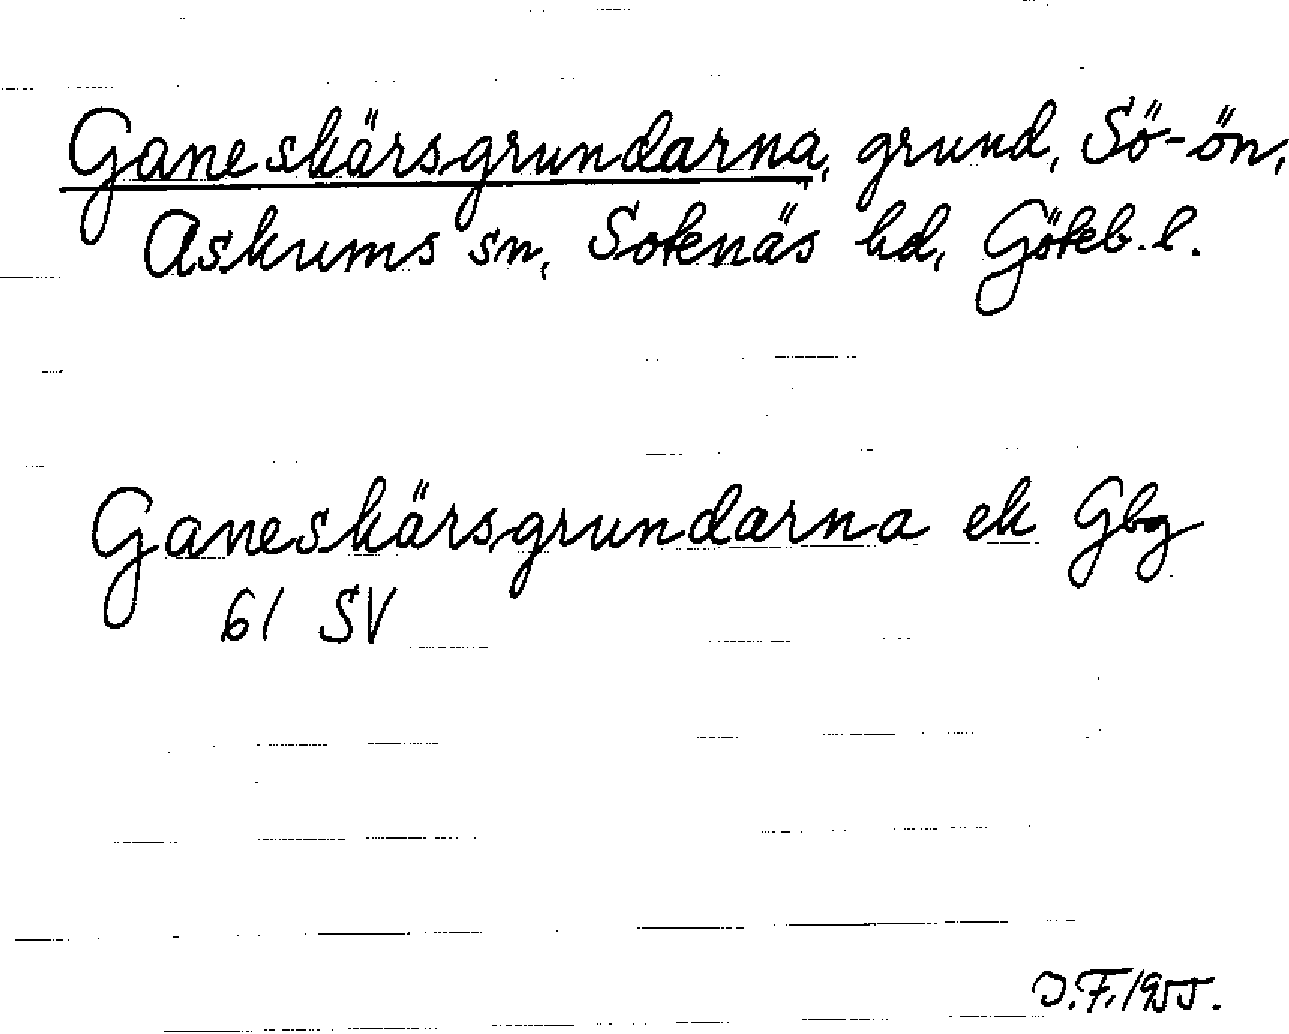 Ganeskärsgrundarna, grund, Sö-ön,
Askums sn, Sotenäs hd, Göteb. l.
Ganeskärsgrundarna ek Gbg
61 SV
J.F. 1955.